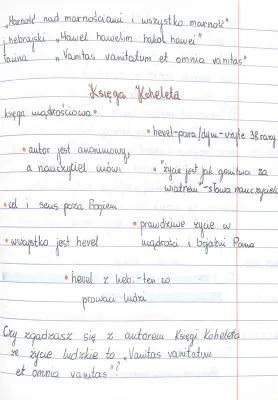 „Marność nad marnościami i wszystko marność"
j. hebrajski „Hawel hawelim hakol hawel"
łacina „Vanitas vanitatum et omnia vanitas"
Księga Koheleta
księga mądrościowa •
• hevel-para/dym-użyte 38 razy
• autor jest anonimowy,
a nauczyciel mówi
• "życie jest jak gonitwa za
wiatrem"-słowa nauczyciela
• cel i sens poza Bogiem
• prawdziwe życie w
mądrości i bojaźni Pana
• wszystko jest hevel
• hevel z heb. - ten co
prowadzi ludzi
Czy zgadzasz się z autorem Księgi Koheleta
że życie ludzkie to „Vanitas vanitatum
et omnia vanitas"?